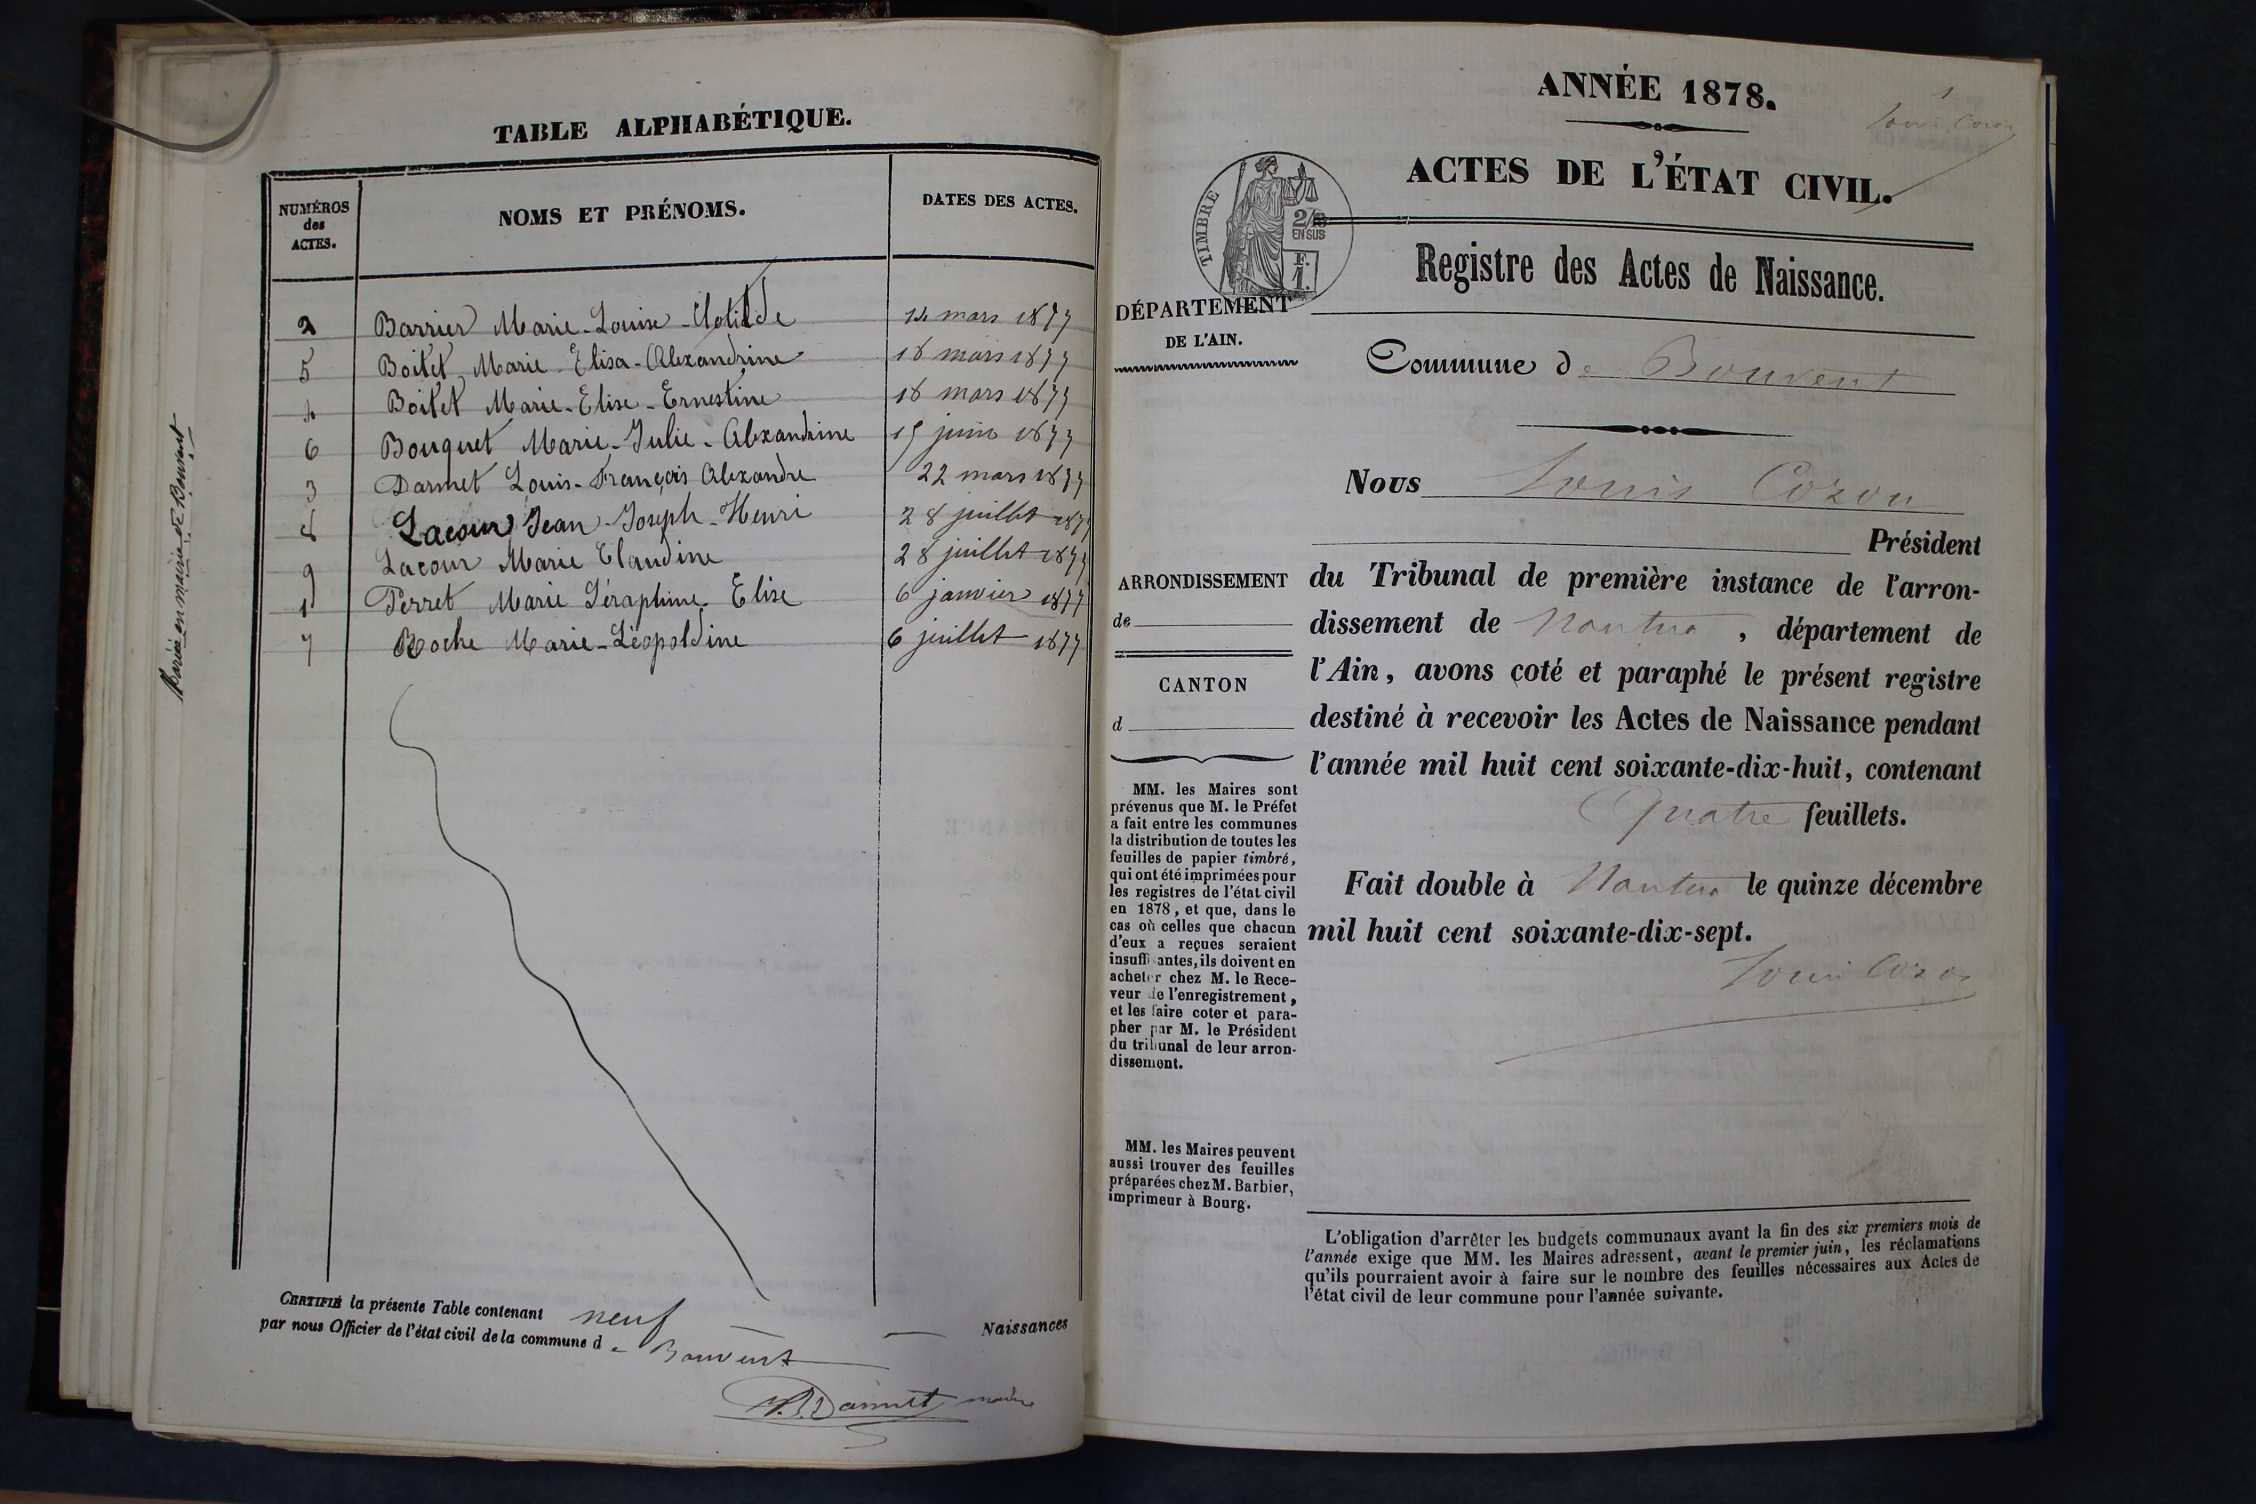 Mariée en mairie de Bouvent
TABLE ALPHABÉTIQUE.
NUMÉROS des ACTES. NOMS ET PRÉNOMS. DATES DES ACTES.
2 Barrier Marie-Louise-Clotilde mars 1877
5 Boitet Marie-Elisa-Alexandrine 18 mars 1877
4 Boitet Marie-Elise-Ernestine 18 mars 1877
6 Bouquet Marie-Julie-Alexandrine 15 juin 1877
3 Darmet Louis-François Alexandre 22 mars 1877
8 Lacour Jean-Joseph-Henri 28 juillet 1877
9 Lacour Marie Claudine 28 juillet 1877
1 Perret Marie Séraphine Elise 6 janvier 1877
7 Roche Marie-Léopoldine 6 juillet 1877
CERTIFIÉ la présente Table contenant neuf Naissances
par nous Officier de l'état civil de la commune de Bouvent
Darmet maire
ANNÉE 1878.
1
Louis Cozon
ACTES DE L'ÉTAT CIVIL.
TIMBRE
2/10
EN SUS
F.
1.
Registre des Actes de Naissance.
DÉPARTEMENT
DE L'AIN.
Commune de Bouvent
Nous Louis Cozon
Président
ARRONDISSEMENT
de
CANTON
d
du Tribunal de première instance de l'arron-
dissement de Nantua, département de
l'Ain, avons coté et paraphé le présent registre
destiné à recevoir les Actes de Naissance pendant
l'année mil huit cent soixante-dix-huit, contenant
Quatre feuillets.
Fait double à Nantua le quinze décembre
mil huit cent soixante-dix-sept.
Louis Cozon
MM. les Maires sont
prévenus que M. le Préfet
a fait entre les communes
la distribution de toutes les
feuilles de papier timbré,
qui ont été imprimées pour
les registres de l'état civil
en 1878, et que, dans le
cas où celles que chacun
d'eux a reçues seraient
insuffisantes, ils doivent en
acheter chez M. le Rece-
veur de l'enregistrement,
et les faire coter et para-
pher par M. le Président
du tribunal de leur arron-
dissement.
MM. les Maires peuvent
aussi trouver des feuilles
préparées chez M. Barbier,
imprimeur à Bourg.
L'obligation d'arrêter les budgets communaux avant la fin des six premiers mois de
l'année exige que MM. les Maires adressent, avant le premier juin, les réclamations
qu'ils pourraient avoir à faire sur le nombre des feuilles nécessaires aux Actes de
l'état civil de leur commune pour l'année suivante.